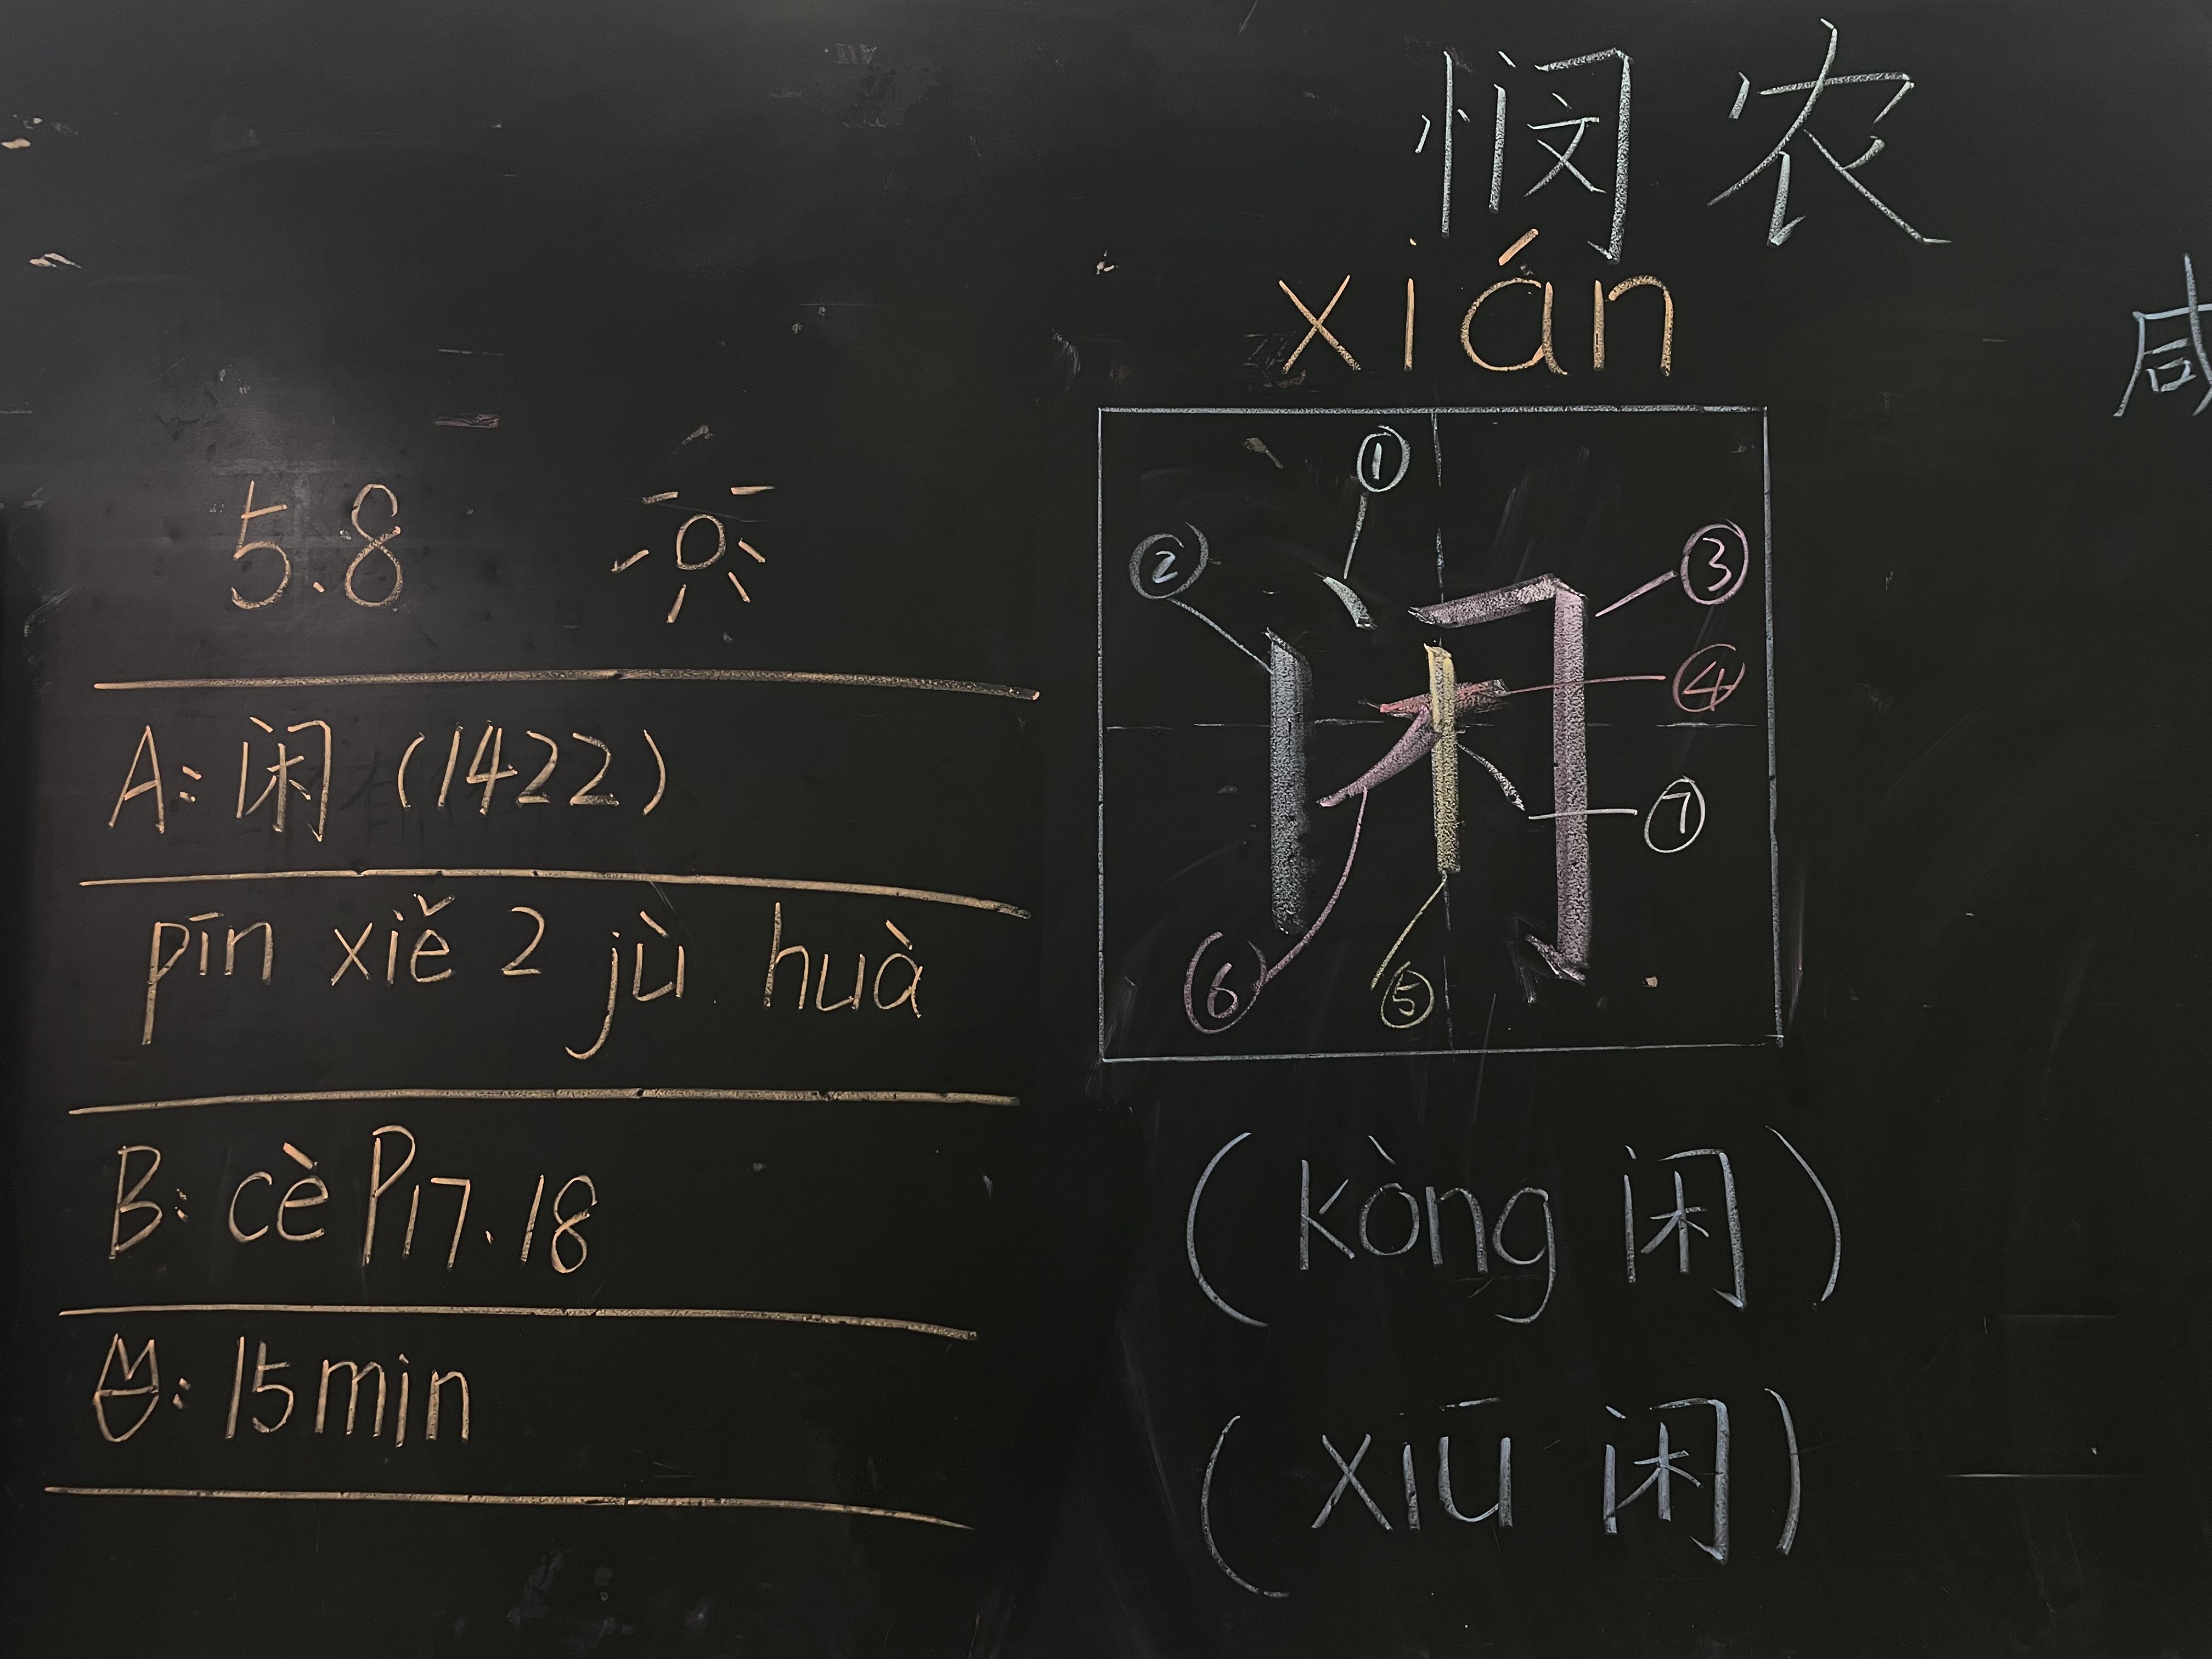 悯农
xián
咸
① ② ③ ④ ⑤ ⑥ ⑦
闲
(kòng 闲)
(xiū 闲)
5.8
A: 闲 (1422)
pīn xiě 2 jù huà
B: cè P17.18
: 15min